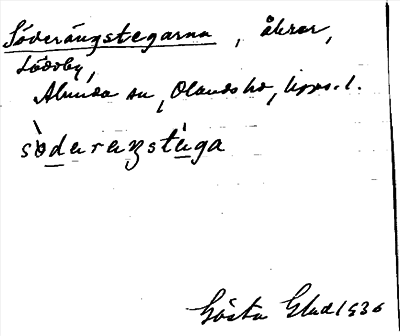 Söderängstegarna, åkrar,
Lddby,
Alunda sn, Olands hd, Upps. l.
sòdaraŋstàga
Gösta Glad 1936